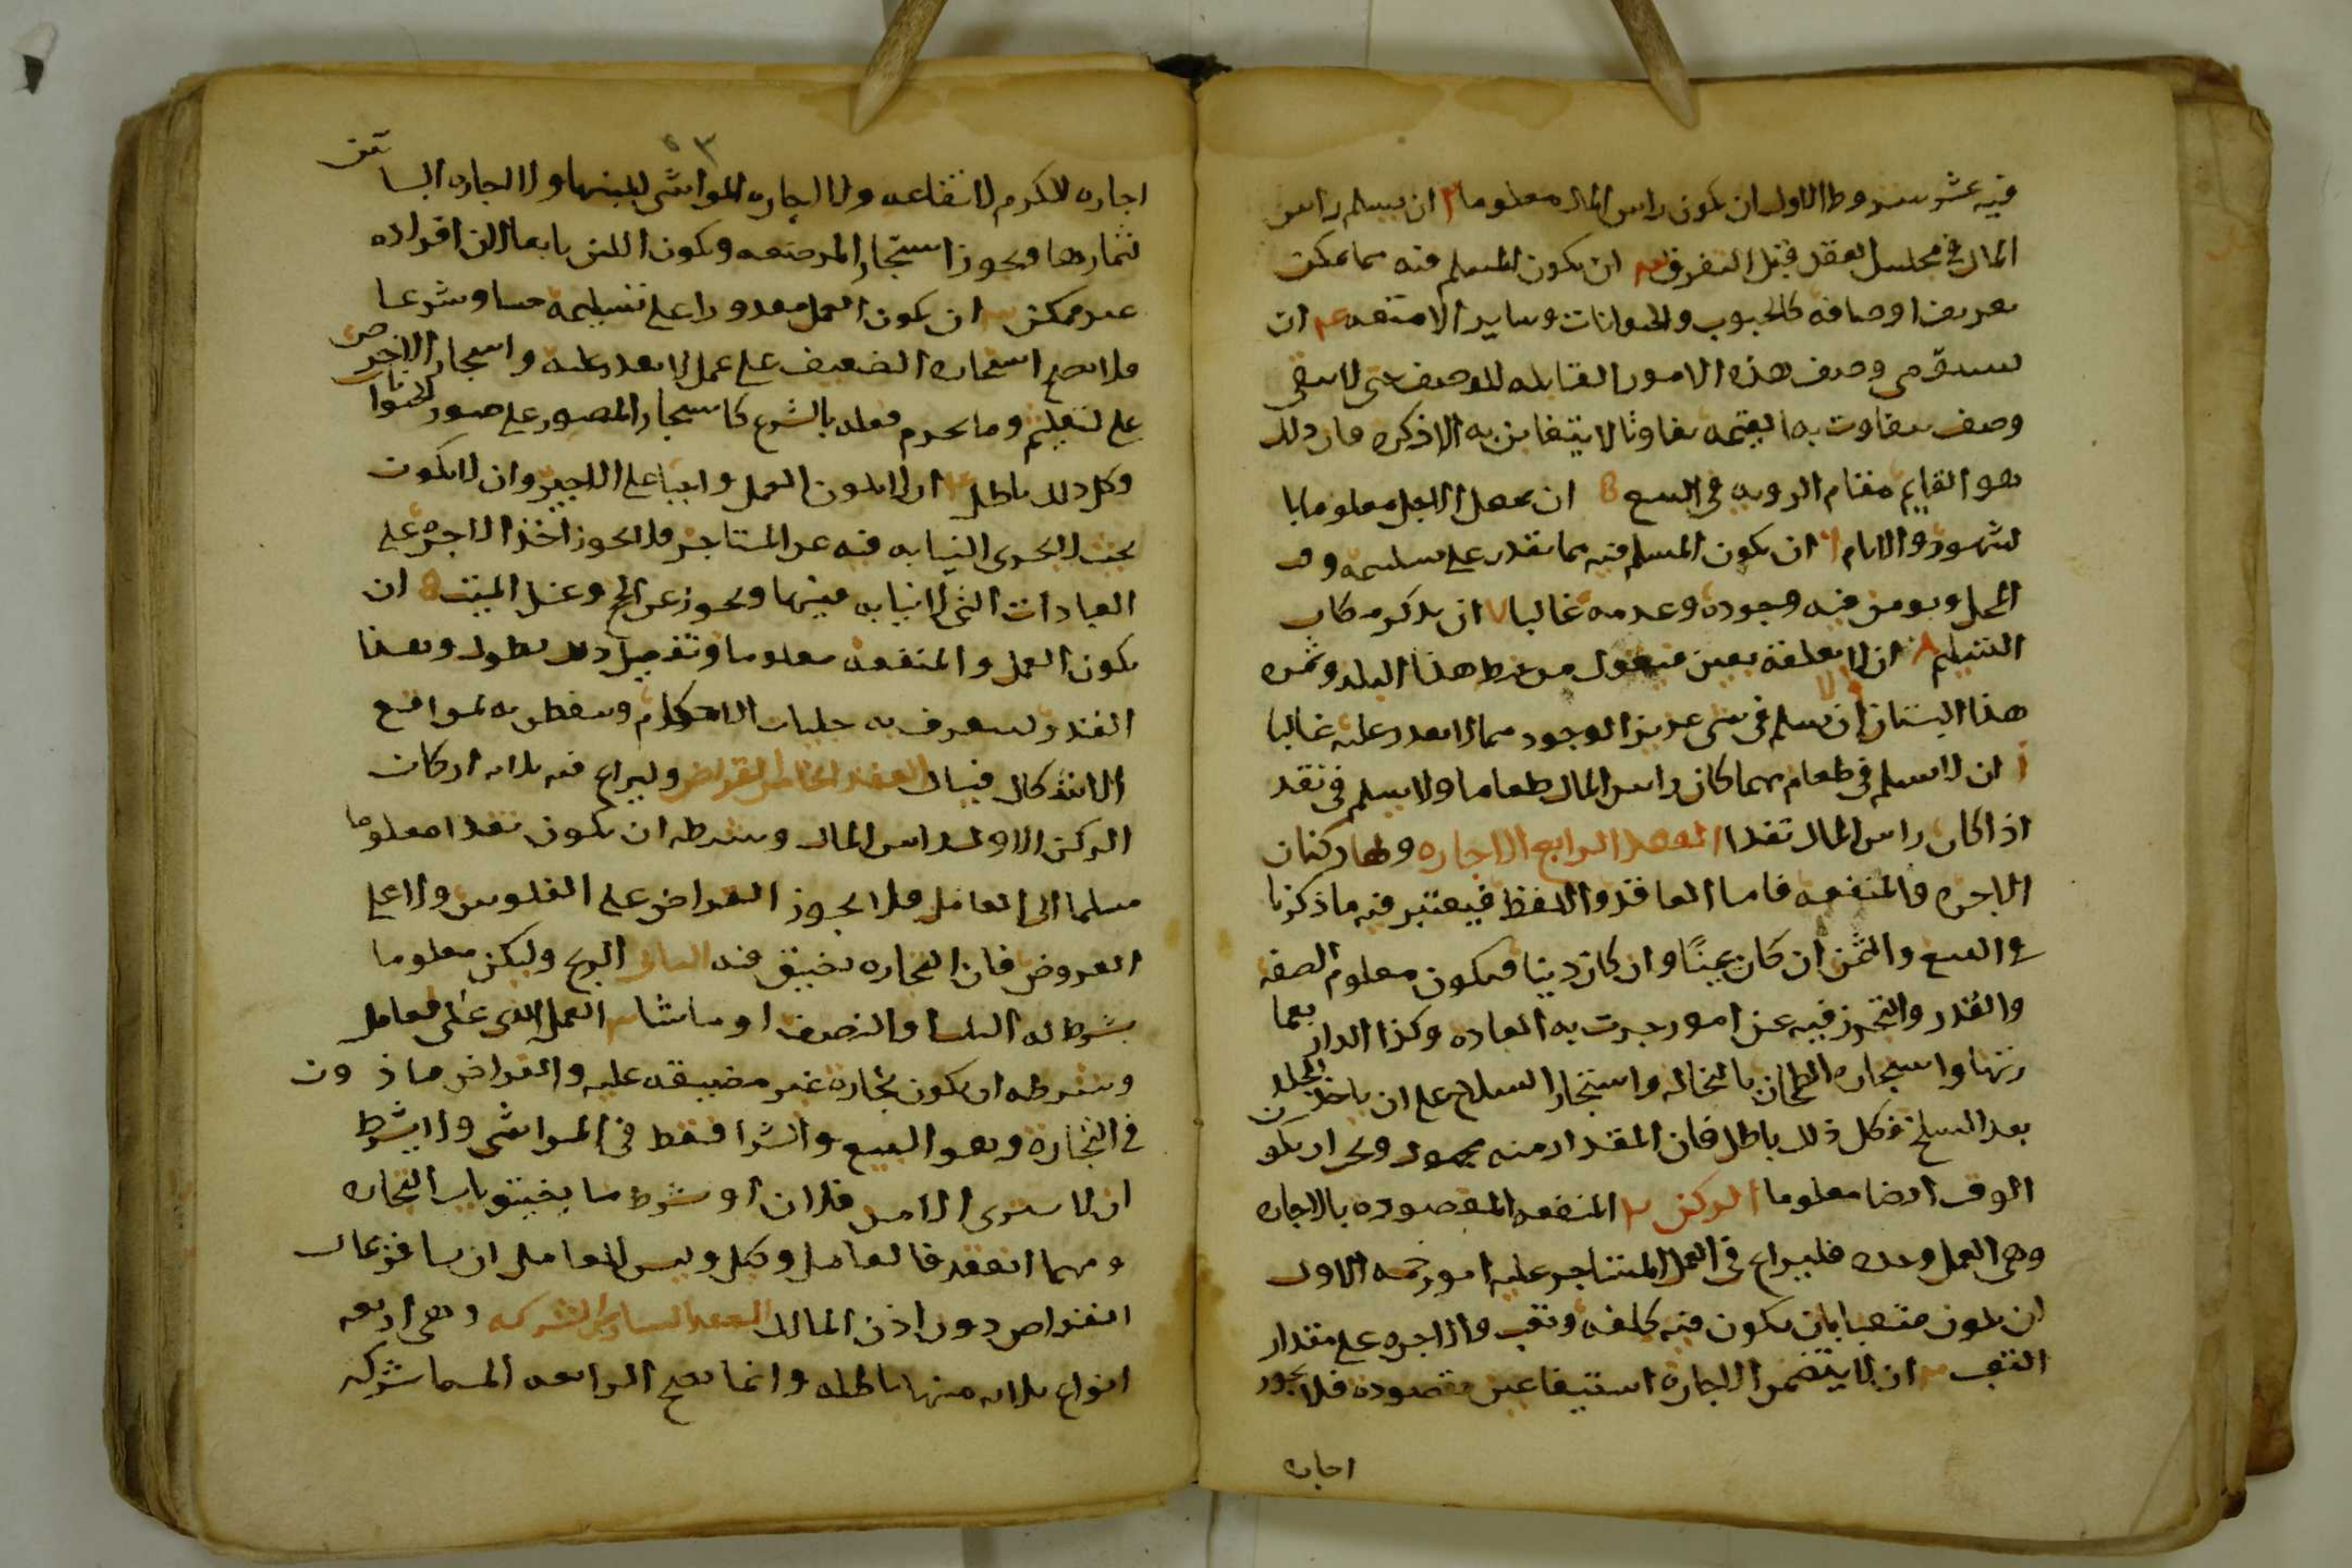 فيه عشر شروط الاول ان يكون راس المال معلوما ٢ ان يسلم راس
المال في مجلس العقد قبل التفرق ٣ ان يكون المسلم فيه مما يمكن
تعريف اوصافه كالحبوب والحيوانات وساير الامتعه ٤ ان
يستوفى وصف هذه الامور القابله للوصف حتى لا يبقى
وصف يتفاوت به القيمه تفاوتا لا يتغابن به الا ذكره فان ذلك
هو القايم مقام الرويه في البيع 8 ان يجعل الاجل معلوما با
لشهور والايام ٦ ان يكون المسلم فيه مما يقدر على تسليمه وقت
المحل ويومن فيه وجوده وعدمه غالبا ٧ ان يذكر مكان
التسليم ٨ ان لا يعلقه بعين فيقول من حنطه هذا البلد وثمره
هذا البستان ان لا يسلم في شي عزيز الوجود مما لا يقدر عليه غالبا
ان لا يسلم في طعام مهما كان راس المال طعاما ولا يسلم في نقد
اذا كان راس المال نقدا العقد الرابع الاجاره ولها ركنان
الاجره والمنفعه فاما العاقد واللفظ فيعتبر فيه ما ذكرنا
في البيع والثمن ان كان عينًا وان كان دينا فيكون معلوم الصفه
والقدر والتحرز فيه عن امور جرت به العاده وكذا الدار بعما
رتها واستجار الطحان بالنخاله واستجار السلاخ على ان ياخذ الجلد
بعد السلخ فكل ذلك باطل فان المقدار منه مجهول ان يكون
الوقت ايضا معلوما الركن ٢ المنفعه المقصوده بالاجاره
وهي العمل وحده فليراع في العمل المستاجر عليه امور خمسه الاول
ان يكون متعبا بان يكون فيه كلفه وتعب والاجره على مقدار
التعب ٢ ان لا يتضمن الاجارة استيفا عين مقصوده فلا يجوز
اجاره
٥٣
اجاره الكرم لانتفاعه ولا اجاره المواشى للبنها ولا اجاره البساتين
لثمارها ويجوز استجار المرضعه ويكون اللبن تابعا لان افراده
غير ممكن ٣ ان يكون العمل مقدورا على تسليمه حسا وشرعا
فلا يصح استجاره الضعيف على عمل لا يقدر عليه واستجار الاخرص
على تعليم وما يحرم فعله بالشرع كاستجار المصور على صور الحيوانات
وكل ذلك باطل ٤ ان لا يكون العمل واجبا على الاجير وان لا يكون
بحيث لا يجرى النيابه فيه عن المستاجر فلا يجوز اخذ الاجره على
العبادات التي لا نيابه فيها ويجوز عن الحج وغسل الميت 8 ان
يكون العمل والمنفعه معلوما وتفصيل ذلك يطول وبهذا
القدر ليتعرف به جليات الاحكام ويتفطن به لمواقع
الاشكال فيسال العقد الخامس القراض وليراع فيه ثلاثه اركان
الركن الاول راس المال وشرطه ان يكون نقدا معلوما
مسلما الى العامل فلا يجوز القراض على الفلوس ولا على
العروض فان التجاره تضيق فيه الثاني الربح وليكن معلوما
بشرط له الثلث او النصف او ما شا ٣ العمل الذي على العامل
وشرطه ان يكون تجارة غير مضيقه عليه والقراض ماذون
في التجارة وهو البيع والشرا فقط في المواشى ولا يشرط
ان لا يشترى الا من فلان او شرط ما يضيق باب التجاره
ومهما انعقد فالعامل وكيل وليس للعامل ان يسافر بمال
القراض دون اذن المالك العقد السادس الشركه وهي اربعه
انواع ثلاثه منها باطله وانما يصح الرابعه المسما شركه